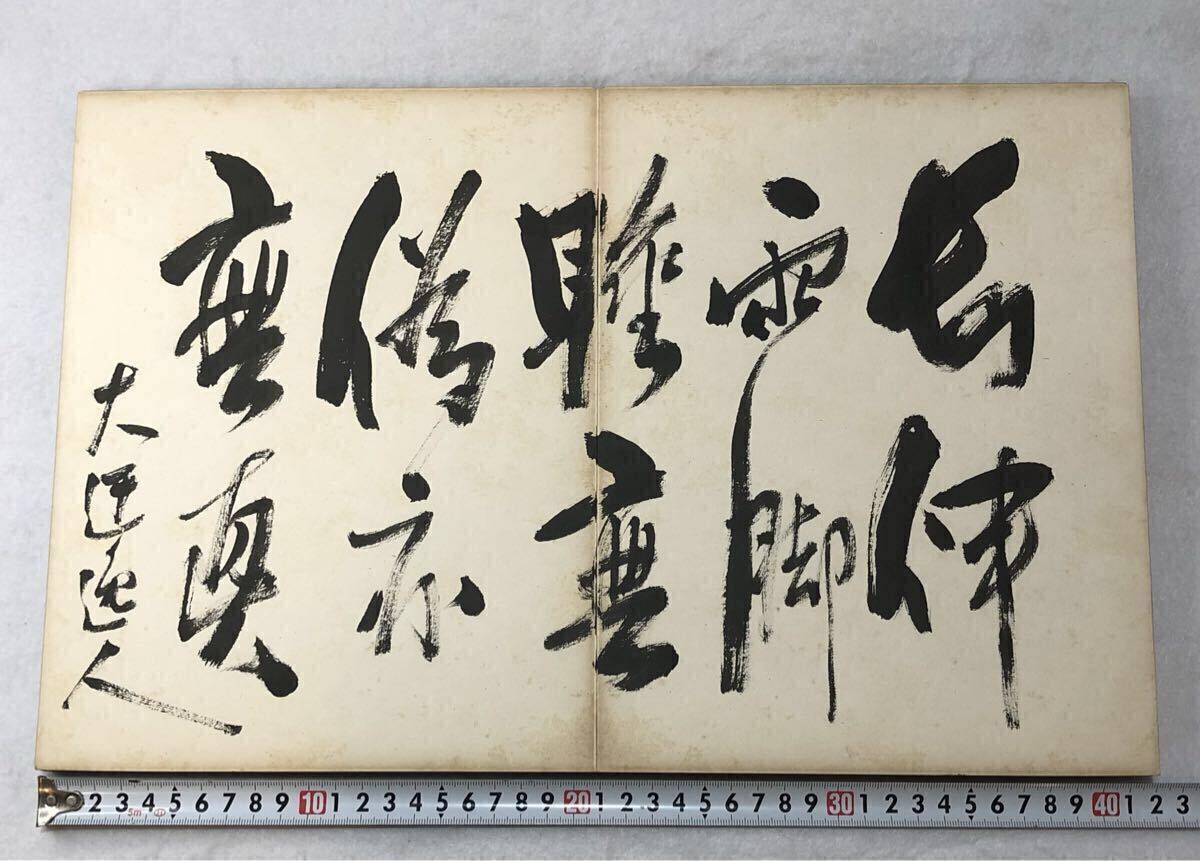 長伸
両脚
睡無
偽亦
無真
大逸人
2 3 4 5 6 7 8 9 10 1 2 3 4 5 6 7 8 9 20 1 2 3 4 5 6 7 8 9 30 1 2 3 4 5 6 7 8 9 40 1 2 3
5m